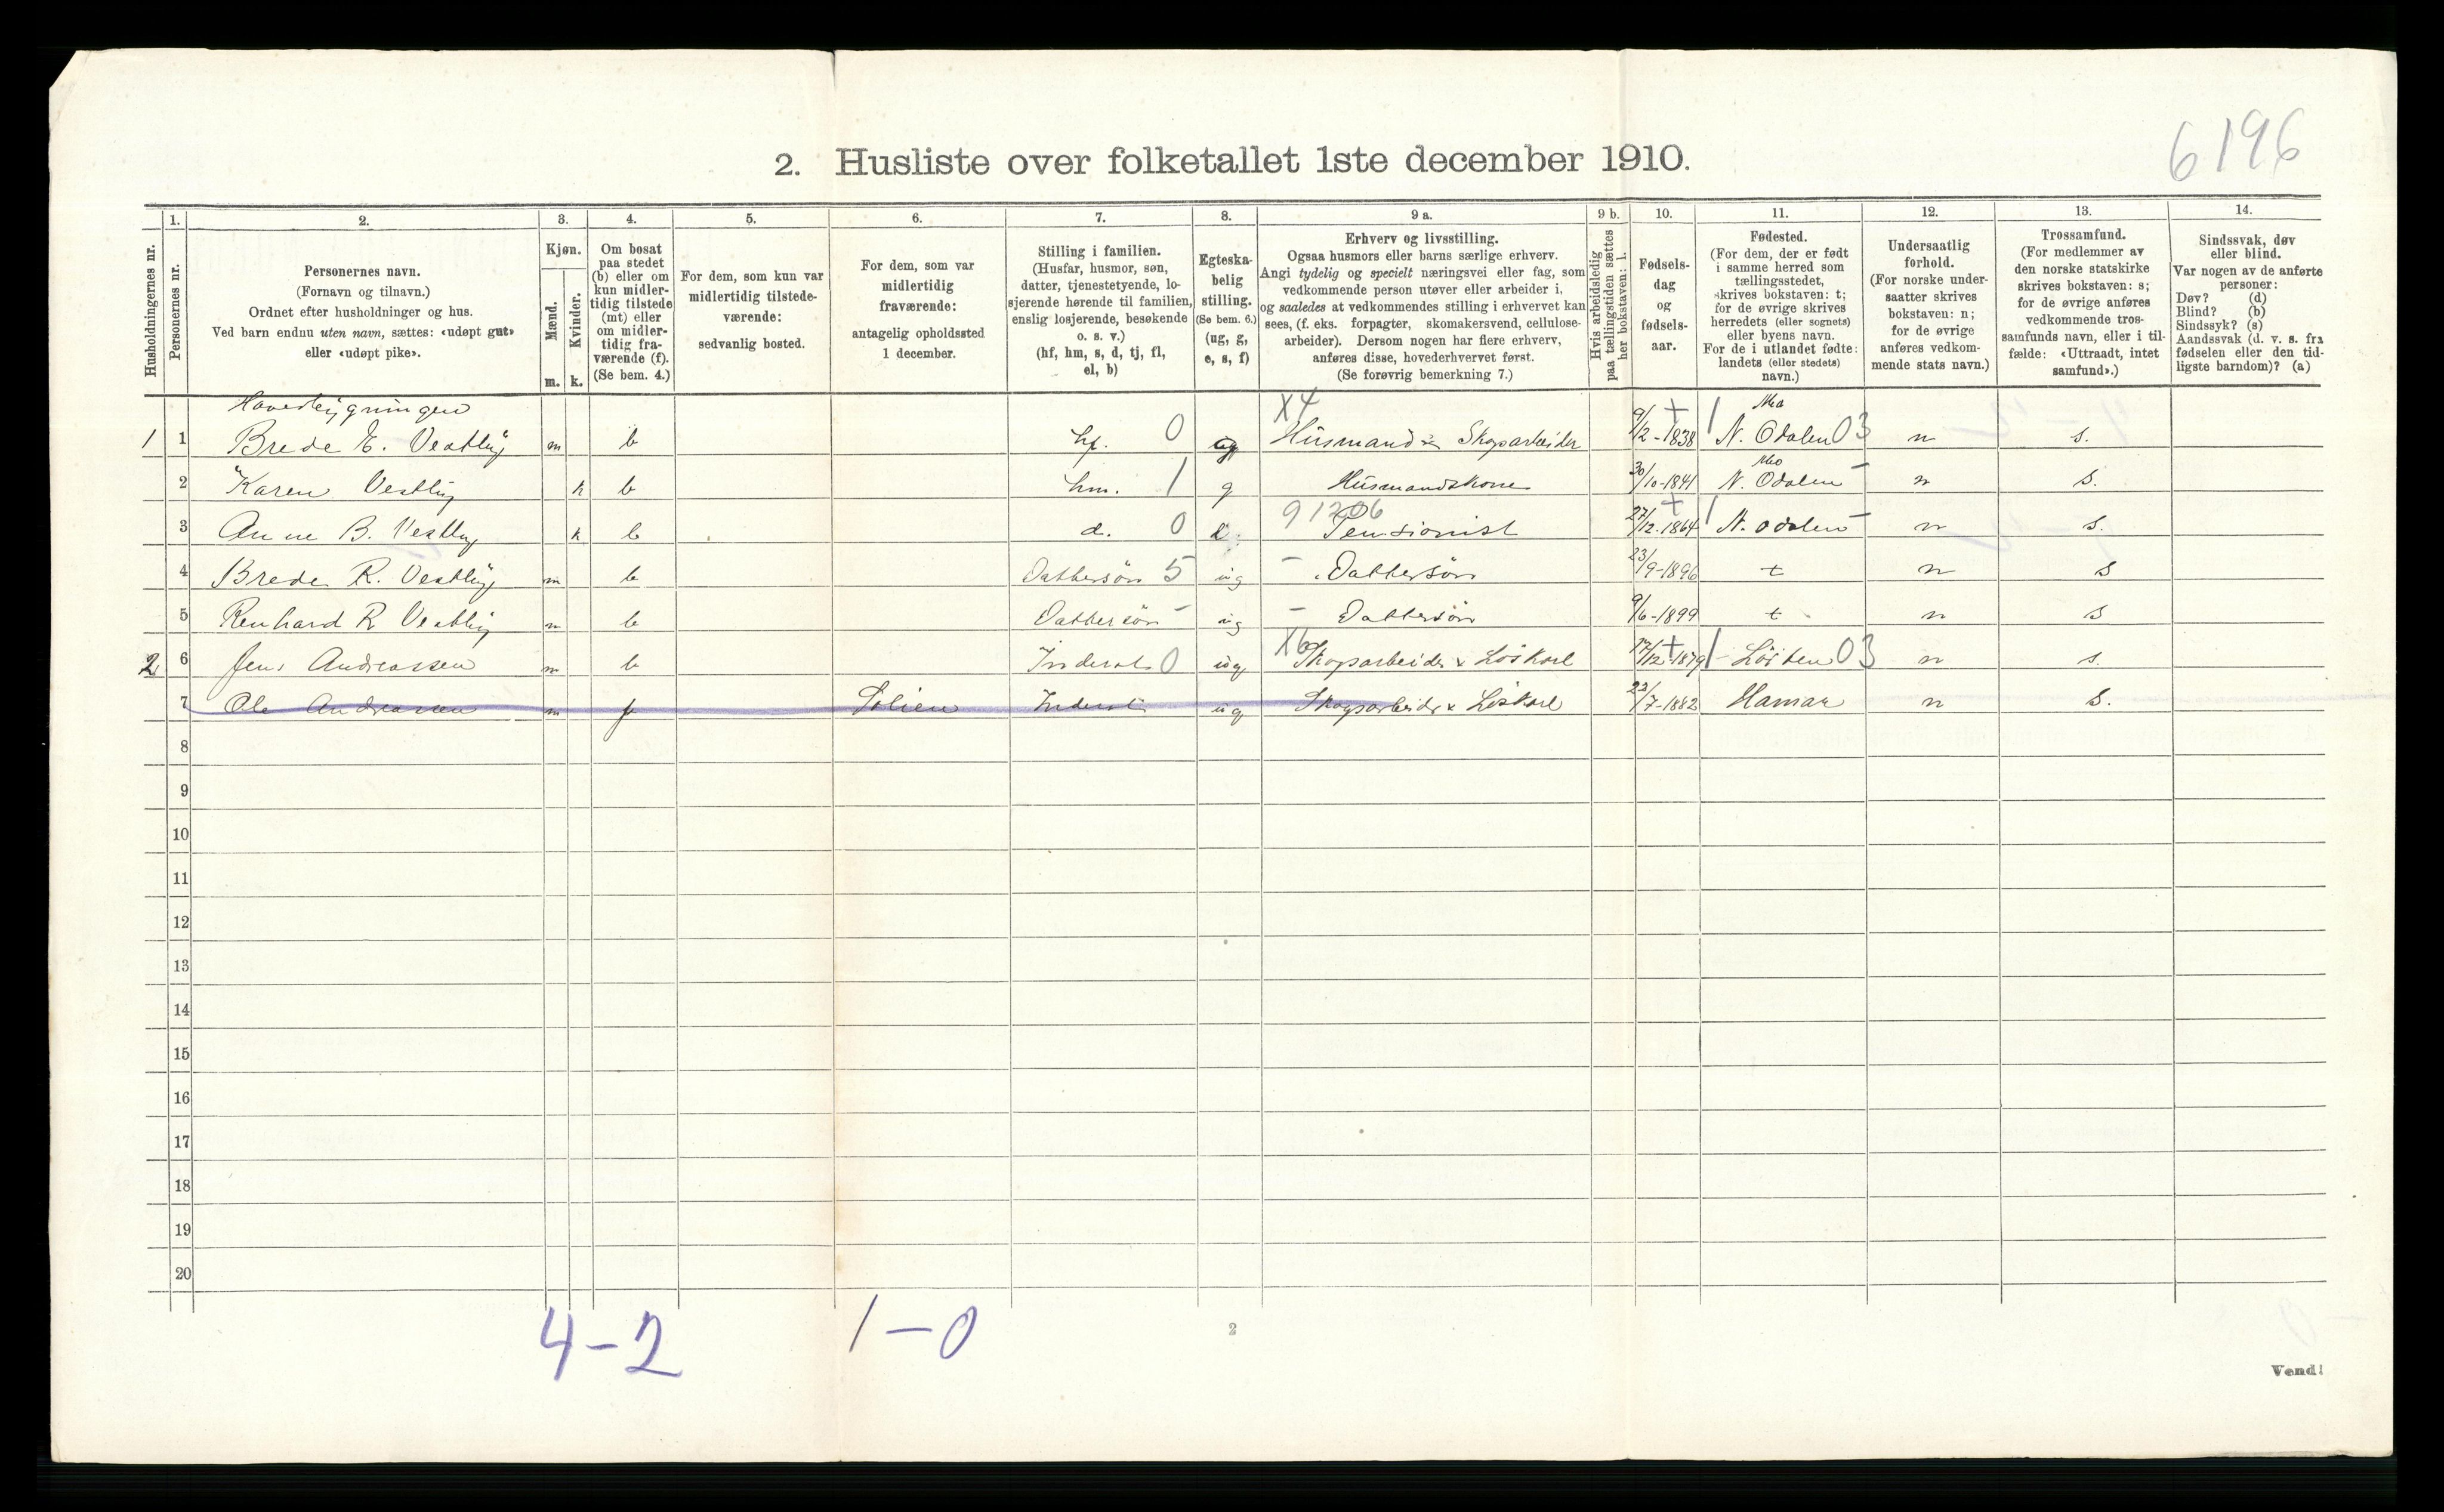 6196
2. Husliste over folketallet 1ste december 1910.
Husholdningernes nr.
1.
Personernes nr.
2.
Personernes navn.
(Fornavn og tilnavn.)
Ordnet efter husholdninger og hus.
Ved barn endnu uten navn, sættes: «udøpt gut»
eller «udøpt pike».
3.
Kjøn.
Mænd.
Kvinder.
m. k.
4.
Om bosat
paa stedet
(b) eller om
kun midler-
tidig tilstede
(mt) eller
om midler-
tidig fra-
værende (f).
(Se bem. 4.)
5.
For dem, som kun var
midlertidig tilstede-
værende:
sedvanlig bosted.
6.
For dem, som var
midlertidig
fraværende:
antagelig opholdssted
1 december.
7.
Stilling i familien.
(Husfar, husmor, søn,
datter, tjenestetyende, lo-
sjerende hørende til familien,
enslig losjerende, besøkende
o. s. v.)
(hf, hm, s, d, tj, fl,
el, b)
8.
Egteska-
belig
stilling.
(Se bem. 6.)
(ug, g,
e, s, f)
9 a.
Erhverv og livsstilling.
Ogsaa husmors eller barns særlige erhverv.
Angi tydelig og specielt næringsvei eller fag, som
vedkommende person utøver eller arbeider i,
og saaledes at vedkommendes stilling i erhvervet kan
sees, (f. eks. forpagter, skomakersvend, cellulose-
arbeider). Dersom nogen har flere erhverv,
anføres disse, hovederhvervet først.
(Se forøvrig bemerkning 7.)
9 b.
Hvis arbeidsledig
paa tællingstiden sættes
her bokstaven: l.
10.
Fødsels-
dag
og
fødsels-
aar.
11.
Fødested.
(For dem, der er født
i samme herred som
tællingsstedet,
skrives bokstaven: t;
for de øvrige skrives
herredets (eller sognets)
eller byens navn.
For de i utlandet fødte:
landets (eller stedets)
navn.)
12.
Undersaatlig
forhold.
(For norske under-
saatter skrives
bokstaven: n;
for de øvrige
anføres vedkom-
mende stats navn.)
13.
Trossamfund.
(For medlemmer av
den norske statskirke
skrives bokstaven: s;
for de øvrige anføres
vedkommende tros-
samfunds navn, eller i til-
fælde: «Uttraadt, intet
samfund».)
14.
Sindssvak, døv
eller blind.
Var nogen av de anførte
personer:
Døv? (d)
Blind? (b)
Sindssyk? (s)
Aandssvak (d. v. s. fra
fødselen eller den tid-
ligste barndom)? (a)
Hovedbygningen X4 + Mo
1 1 Brede E. Vestby m b hf. 0 g Husmand Skogsarbeider 9/2-1838 1 N. Odalen 03 n s.
2 Karen Vestby k b hm. 1 g Husmandskone 30/10-1841 Mo N. Odalen - n s.
3 Anne B. Vestby k b d. 0 91206 Pensionist 27/12-1864 + 1 N. Odalen - n s.
4 Brede R. Vestby m b Dattersøn 5 ug - Dattersøn 23/9-1896 t n s
5 Renhard R Vestby m b Dattersøn - ug - Dattersøn 9/6-1899 t n s
2 6 Jens Andreassen m b Inderst 0 ug X6 Skogsarbeider x Løskarl 17/12-1879 + 1 Løiten 03 n s.
7 Ole Andreassen m f Solien Inderst ug Skogsarbeider x Løskarl 22/7-1882 Hamar n s.
8
9
10
11
12
13
14
15
16
17
18
19
20
4-2 1-0
2
Vend!